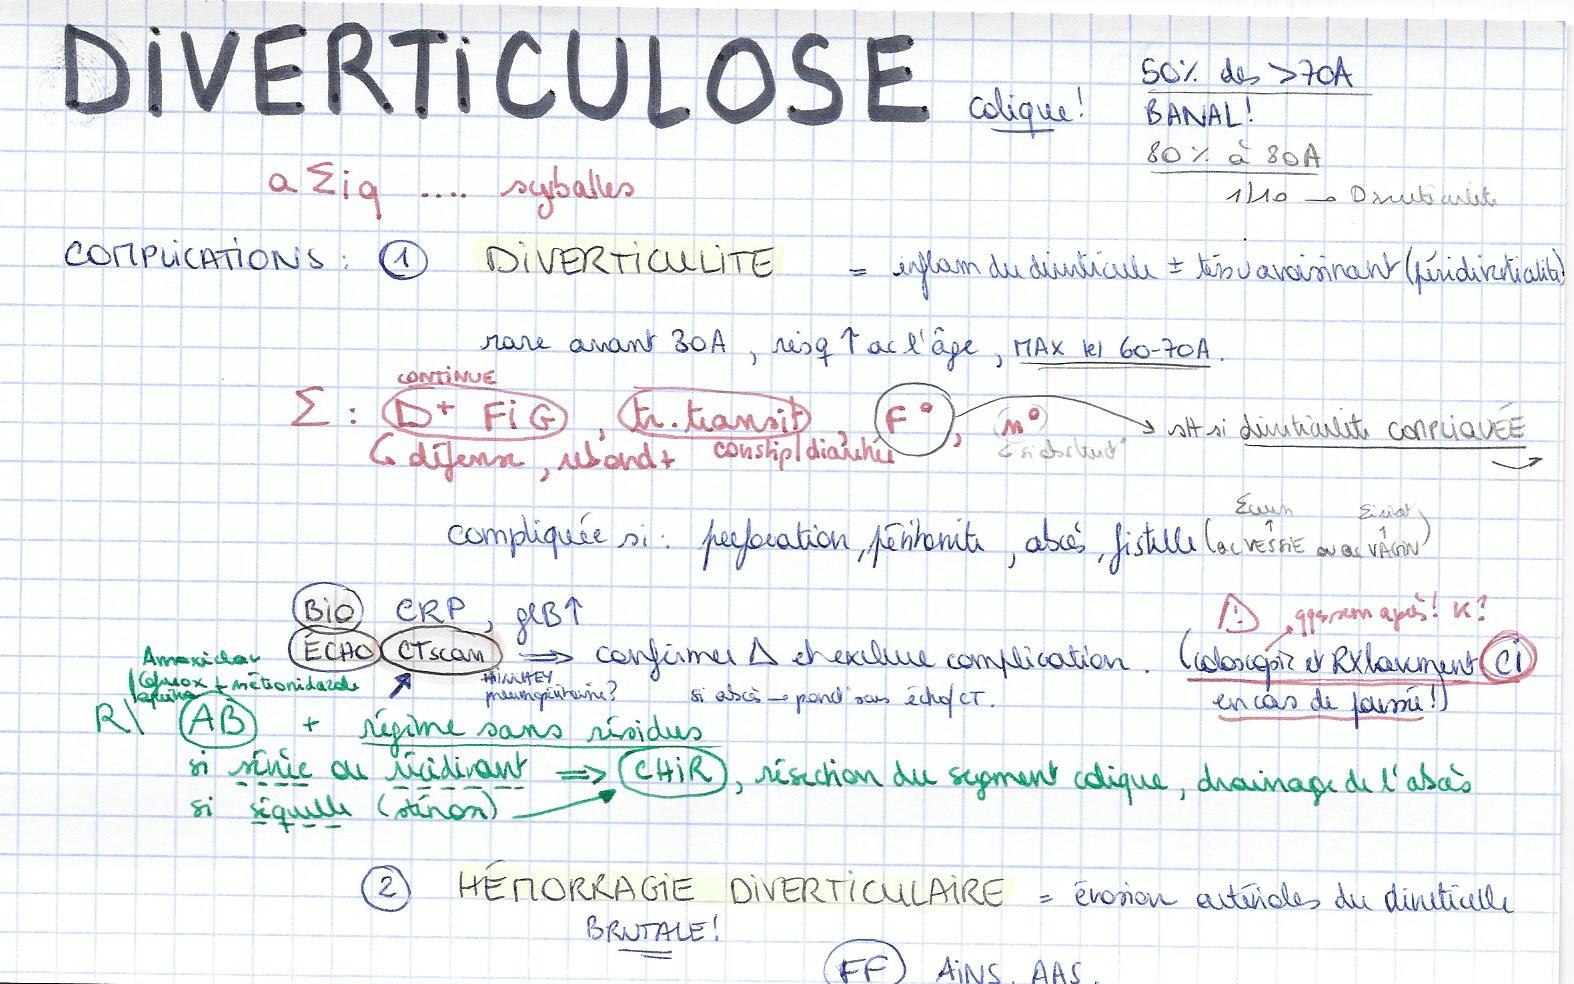 DIVERTICULOSE colique!
50% des >70A
BANAL!
80% à 80A
1/10 → Diverticulite
aΣiq .... scyballes
COMPLICATIONS : ① DIVERTICULITE = inflam du diverticule ± tissu avoisinant (péridiverticulite)
rare avant 30A, risq ↑ ac l'âge, MAX 60-70A.
CONTINUE
Σ : D+ FiG, tr. transit, F°, n° → slt si diverticulite COMPLIQUÉE
↳ défense, rebond+ constip/diarrhée
compliquée si : perforation, péritonite, abcès, fistulle (ac VESSIE ou ac VAGIN)
Bio CRP, glB↑
⚠ qq sem après! K?
ÉCHO CTscan ⇒ confirmer Δ et exclure complication. (coloscopie et RX lavement CI
en cas de poussée!)
HINCHEY
pneumopéritoine?
si abcès → ponct° sous écho/CT.
Amoxiclav
+ métronidazole
R\ AB + régime sans résidus
si sévère ou récidivant ⇒ CHIR, résection du segment colique, drainage de l'abcès
si séquelle (sténose)
② HÉMORRAGIE DIVERTICULAIRE = érosion artérioles du diverticulle
BRUTALE!
FF AINS, AAS.